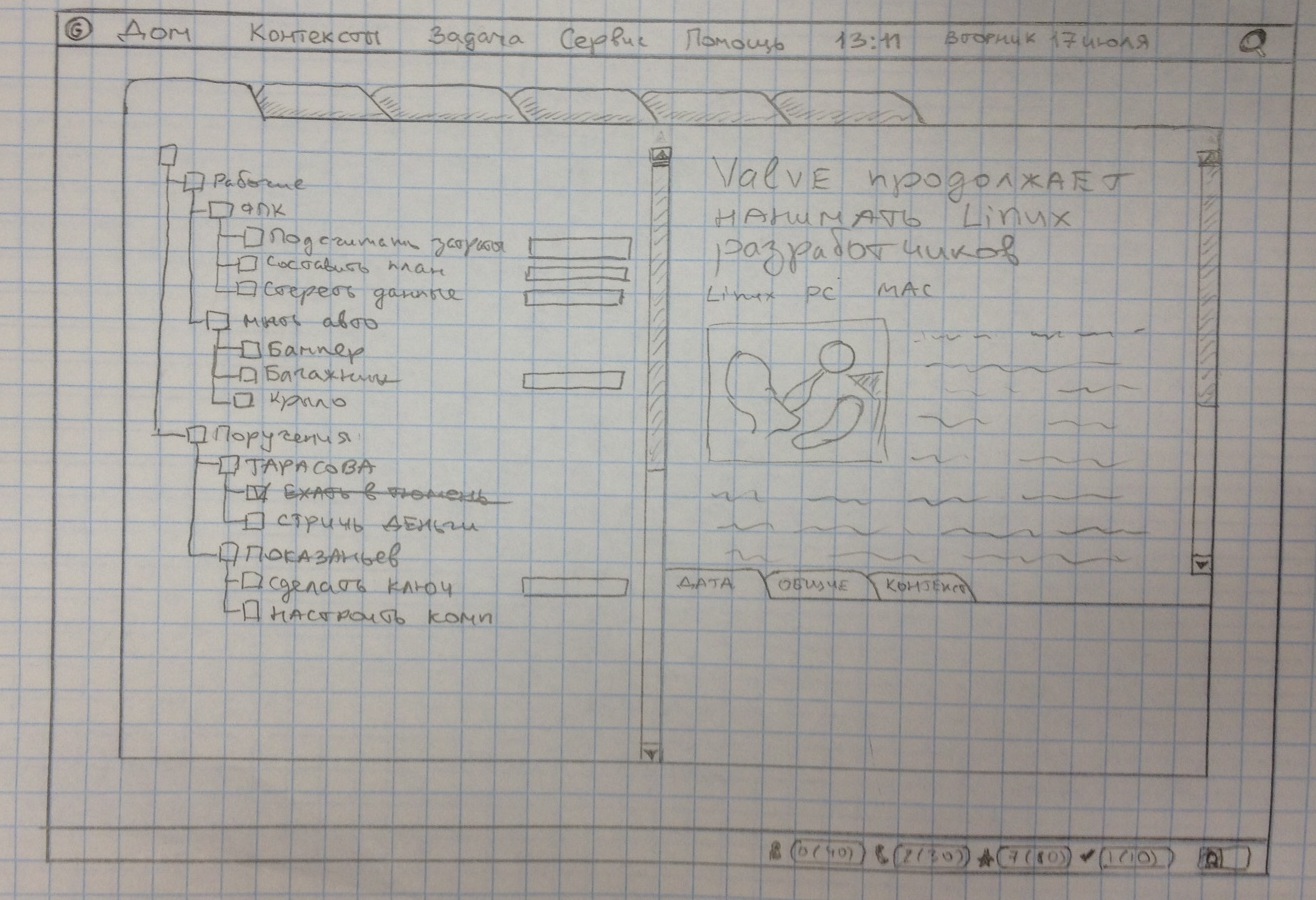 G Дом Контексты Задача Сервис Помощь 13:11 Вторник 17 июля
Рабочие
Подсчитать затраты
Составить план
Стереть данные
авто
Бампер
Багажник
Крыло
Поручения
ТАРАСОВА
ЕХАТЬ В ТЮМЕНЬ
СТРИЧЬ ДЕНЬГИ
ПОКАЗАНЬЕВ
Сделать ключ
НАСТРОИТЬ КОМП
Valve продолжает
нанимать Linux
разработчиков
Linux PC MAC
ДАТА ОБЩИЕ КОНТЕКСТ
0(40) 2(30) 7(80) 1(10)